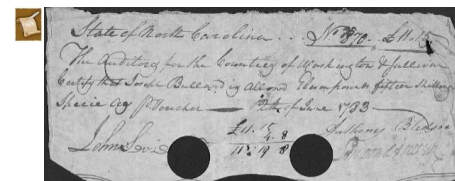 State of North Carolina . . . No. 870 . £11.15
The Auditors for the Counties of Washington & Sullivan
Certify that Joseph Bullard is allowed Eleven pounds fifteen Shillings
Specie as Voucher — of June 1783
£11.15
4.8
11.19.8
John Anthony Bledsoe